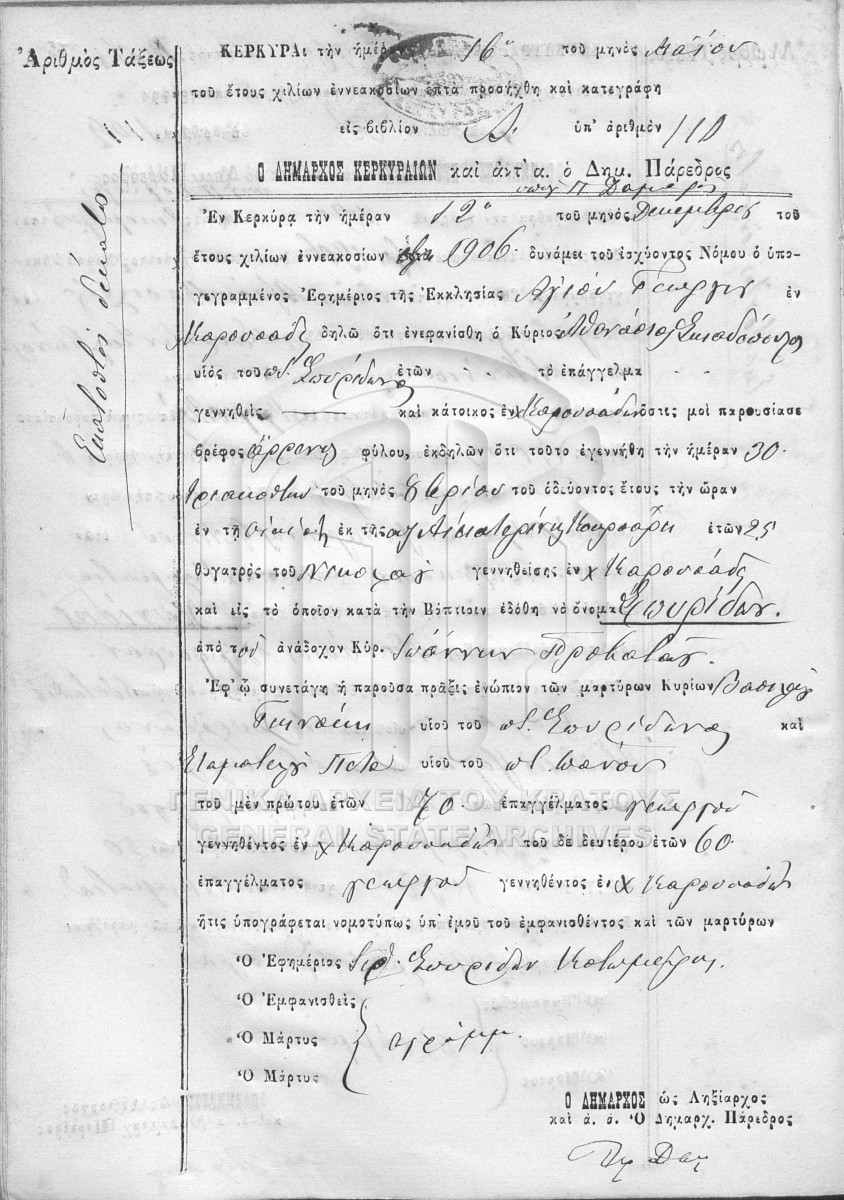 Ἀριθμὸς Τάξεως
110
Ἑκατοστὸν δέκατον
ΚΕΡΚΥΡΑι τὴν ἡμέραν 16ῃ τοῦ μηνὸς Μαΐου
τοῦ ἔτους χιλίων ἐννεακοσίων ἑπτα προσήχθη καὶ κατεγράφη
εἰς βιβλίον Α. ὑπ' ἀριθμὸν 110
Ο ΔΗΜΑΡΧΟΣ ΚΕΡΚΥΡΑΙΩΝ καὶ ἀντ' α. ὁ Δημ. Πάρεδρος
Ἐν Κερκύρᾳ τὴν ἡμέραν 12ῃ τοῦ μηνὸς Δεκεμβρίου τοῦ
ἔτους χιλίων ἐννεακοσίων 1906 δυνάμει τοῦ ἰσχύοντος Νόμου ὁ ὑπο-
γεγραμμένος Ἐφημέριος τῆς Ἐκκλησίας Ἁγίου Γεωργίου ἐν
Καρουσάδες δηλῶ ὅτι ἐνεφανίσθη ὁ Κύριος Ἀθανάσιος Σκιαδόπουλος
υἱὸς τοῦ ποτ. Σπυρίδωνος ἐτῶν τὸ ἐπάγγελμα
γεννηθεὶς καὶ κάτοικος ἐν Καρουσάδων ὅστις μοὶ παρουσίασε
βρέφος ἄρρενος φύλου, ἐκδηλῶν ὅτι τοῦτο ἐγεννήθη τὴν ἡμέραν 30
τριακοστὴν τοῦ μηνὸς 8βρίου τοῦ ὁδεύοντος ἔτους τὴν ὥραν
ἐν τῇ οἰκίᾳ ἐκ τῆς Αἰκατερίνης ἐτῶν 25
θυγατρὸς τοῦ Νικολάου γεννηθείσης ἐν χ Καρουσάδες
καὶ εἰς τὸ ὁποῖον κατὰ τὴν Βάπτισιν ἐδόθη τὸ ὄνομα Σπυρίδων.
ἀπὸ τοῦ ἀνάδοχον Κύρ. Ἰωάννην Προβατᾶ.
Ἐφ' ᾧ συνετάγη ἡ παροῦσα πρᾶξις ἐνώπιον τῶν μαρτύρων Κυρίων Βασιλείου
υἱοῦ τοῦ ποτ. Σπυρίδωνος καὶ
Σταματέλου υἱοῦ τοῦ ποτ. Πάνου
τοῦ μὲν πρώτου ἐτῶν 70 ἐπαγγέλματος γεωργοῦ
ΓΕΝΙΚΑ ΑΡΧΕΙΑ ΤΟΥ ΚΡΑΤΟΥΣ
GENERAL STATE ARCHIVES
γεννηθέντος ἐν χ Καρουσάδες τοῦ δὲ δευτέρου ἐτῶν 60
ἐπαγγέλματος γεωργοῦ γεννηθέντος ἐν χ Καρουσάδες
ἥτις ὑπογράφεται νομοτύπως ὑπ' ἐμοῦ τοῦ ἐμφανισθέντος καὶ τῶν μαρτύρων
Ὁ Ἐφημέριος Σπυρίδων
Ὁ Ἐμφανισθεὶς
Ὁ Μάρτυς ἀγράμμ.
Ὁ Μάρτυς
Ο ΔΗΜΑΡΧΟΣ ὡς Ληξίαρχος
καὶ ἀ. ἀ. Ὁ Δημαρχ. Πάρεδρος